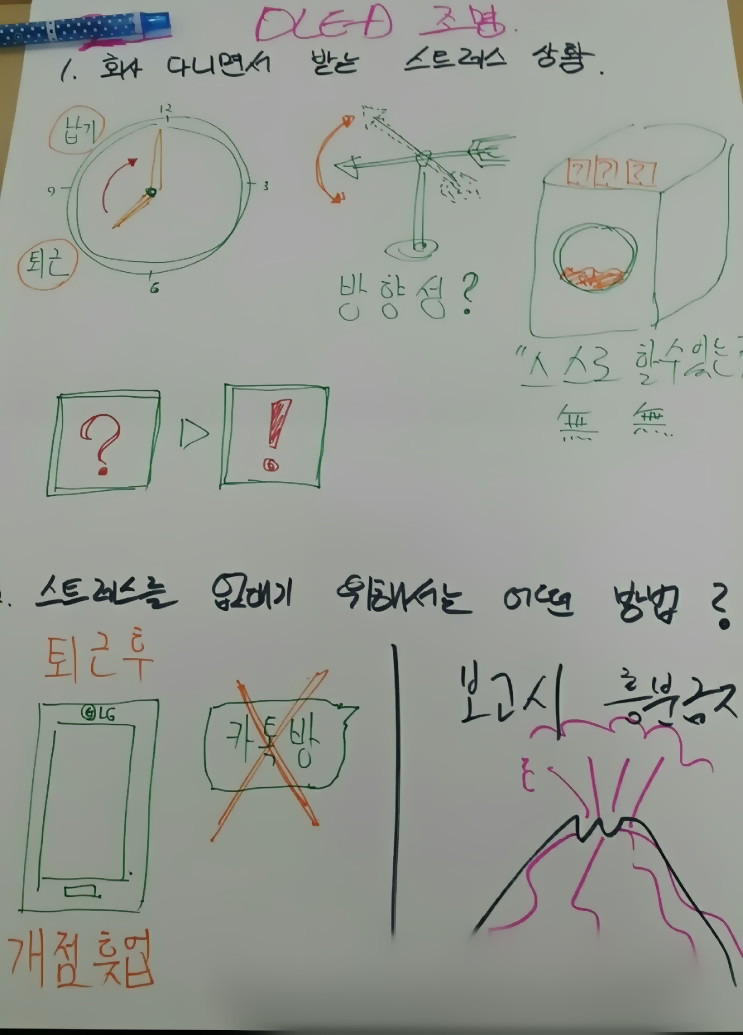 OLED 조명.
1. 회사 다니면서 받는 스트레스 상황.
납기
12
9
3
퇴근
6
방향성?
? ? ?
"스스로 할수있는
無 無
?
!
. 스트레스를 없애기 위해서는 어떤 방법?
퇴근후
LG
카톡방
개점휴업
보고시 흥분금지